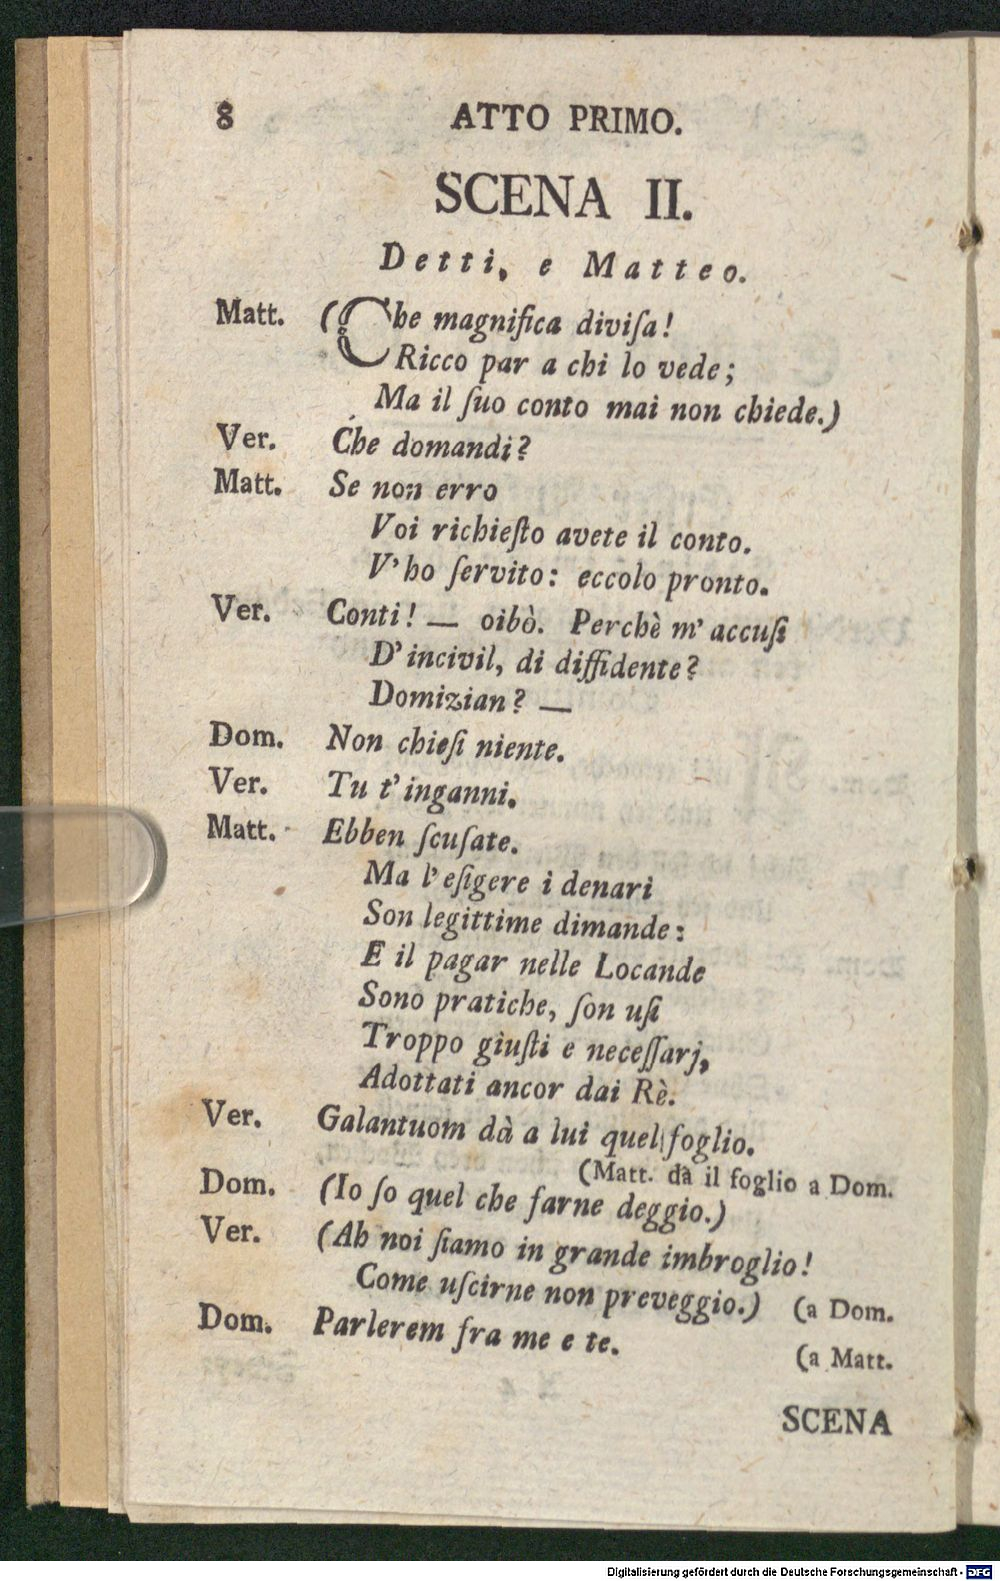 8 ATTO PRIMO.
SCENA II.
Detti, e Matteo.
Matt. (Che magnifica diviſa!
Ricco par a chi lo vede;
Ma il ſuo conto mai non chiede.)
Ver. Che domandi?
Matt. Se non erro
Voi richieſto avete il conto.
V'ho ſervito: eccolo pronto.
Ver. Conti! — oibò. Perchè m'accuſi
D'incivil, di diffidente?
Domizian? —
Dom. Non chieſi niente.
Ver. Tu t'inganni.
Matt. Ebben ſcuſate.
Ma l'eſigere i denari
Son legittime dimande:
E il pagar nelle Locande
Sono pratiche, ſon uſi
Troppo giuſti e neceſſarj,
Adottati ancor dai Rè.
Ver. Galantuom dà a lui quel foglio.
(Matt. dà il foglio a Dom.
Dom. (Io ſo quel che farne deggio.)
Ver. (Ah noi ſiamo in grande imbroglio!
Come uſcirne non preveggio.) (a Dom.
Dom. Parlerem fra me e te.
(a Matt.
SCENA
Digitalisierung gefördert durch die Deutsche Forschungsgemeinschaft - DFG